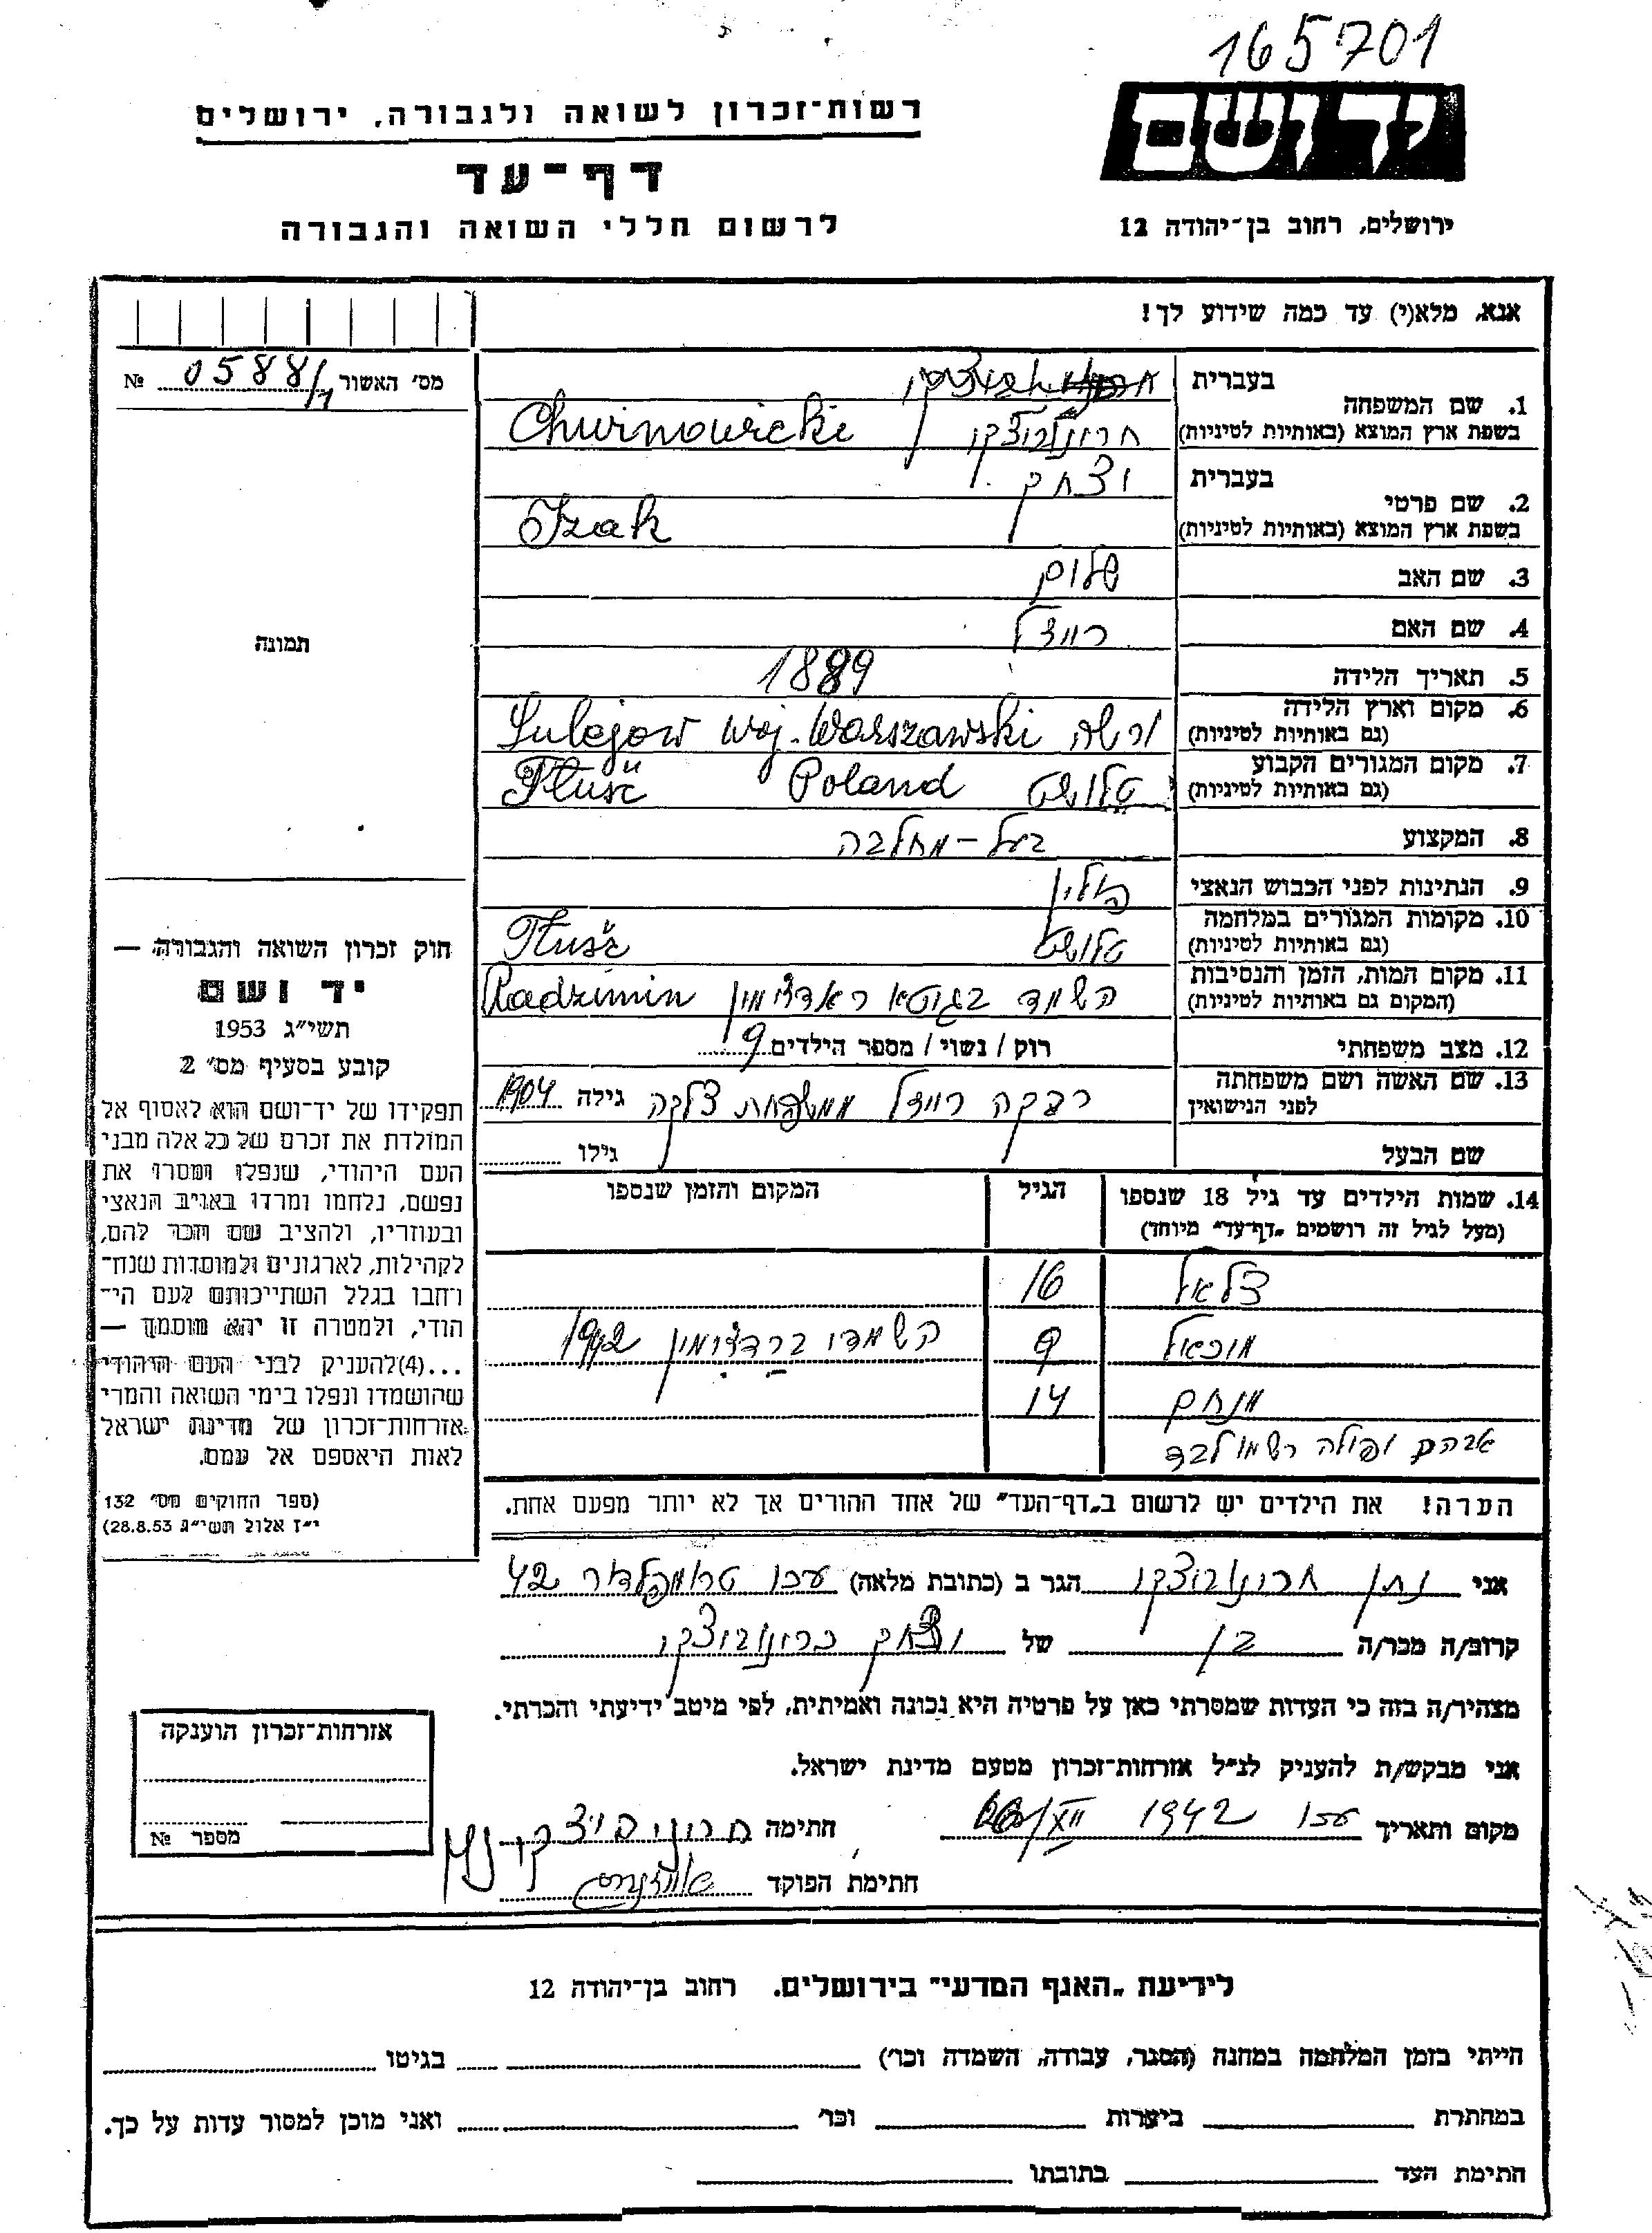 165701
יד ושם
ירושלים, רחוב בן־יהודה 12
רשות־זכרון לשואה ולגבורה, ירושלים
דף־עד
לרשום חללי השואה והגבורה
אנא, מלא(י) עד כמה שידוע לך!
מס׳ האשור 0588/1 №
1. שם המשפחה
בעברית
בשפת ארץ המוצא (באותיות לטיניות) חרונוביצקי Chwinowicki
2. שם פרטי
בעברית יצחק
בשפת ארץ המוצא (באותיות לטיניות) Izak
3. שם האב שלום
4. שם האם רייזל
5. תאריך הלידה 1889
6. מקום וארץ הלידה
(גם באותיות לטיניות) ורשה Sulejow woj. Warszawski
7. מקום המגורים הקבוע
(גם באותיות לטיניות) טלושץ Poland Tłuszč
8. המקצוע בעל-מחלבה
9. הנתינות לפני הכבוש הנאצי פולין
10. מקומות המגורים במלחמה
(גם באותיות לטיניות) טלושץ Tłušč
11. מקום המות, הזמן והנסיבות
(המקום גם באותיות לטיניות) השמד בגוטא ראדזימין Radzimin
12. מצב משפחתי רוק / נשוי / מספר הילדים 9
13. שם האשה ושם משפחתה
לפני הנישואין רבקה רייזל ממשפחת צלקה גילה 1904
שם הבעל גילו
14. שמות הילדים עד גיל 18 שנספו
(מעל לגיל זה רושמים „דף־עד״ מיוחד)
הגיל
המקום והזמן שנספו
צלאל 16
מיכאל 9 השמדו ברדזימין 1942
מנחם 14
אברהם ופולה רשמו לבד
הערה! את הילדים יש לרשום ב„דף־העד״ של אחד ההורים אך לא יותר מפעם אחת.
תמונה
חוק זכרון השואה והגבורה —
יד ושם
תשי״ג 1953
קובע בסעיף מס׳ 2
תפקידו של יד־ושם הוא לאסוף אל
המולדת את זכרם של כל אלה מבני
העם היהודי, שנפלו ומסרו את
נפשם, נלחמו ומרדו באויב הנאצי
ובעוזריו, ולהציב שם וזכר להם,
לקהילות, לארגונים ולמוסדות שנח־
רחבו בגלל השתייכותם לעם הי־
הודי, ולמטרה זו יהא מוסמך —
...(4) להעניק לבני העם היהודי
שהושמדו ונפלו בימי השואה והמרי
אזרחות־זכרון של מדינת ישראל
לאות היאספם אל עמם.
(ספר החוקים מס׳ 132
י״ז אלול תשי״ג 28.8.53)
אני נתן חרונוביצקי הגר ב (כתובת מלאה) עכו טרומפלדור 42
קרוב/ה מכר/ה בן של יצחק כרונוביצקי
מצהיר/ה בזה כי העדות שמסרתי כאן על פרטיה היא נכונה ואמיתית, לפי מיטב ידיעתי והכרתי.
אני מבקש/ת להעניק לנ״ל אזרחות־זכרון מטעם מדינת ישראל.
מקום ותאריך עכו 1942 XII/ חתימה חרוניביצקי נתן
חתימת הפוקד
אזרחות־זכרון הוענקה
מספר №
לידיעת „האגף המדעי״ בירושלים. רחוב בן־יהודה 12
הייתי בזמן המלחמה במחנה (הסגר, עבודה, השמדה וכו׳) בגיטו
במחתרת ביערות וכו׳ ואני מוכן למסור עדות על כך.
חתימת העד כתובתו